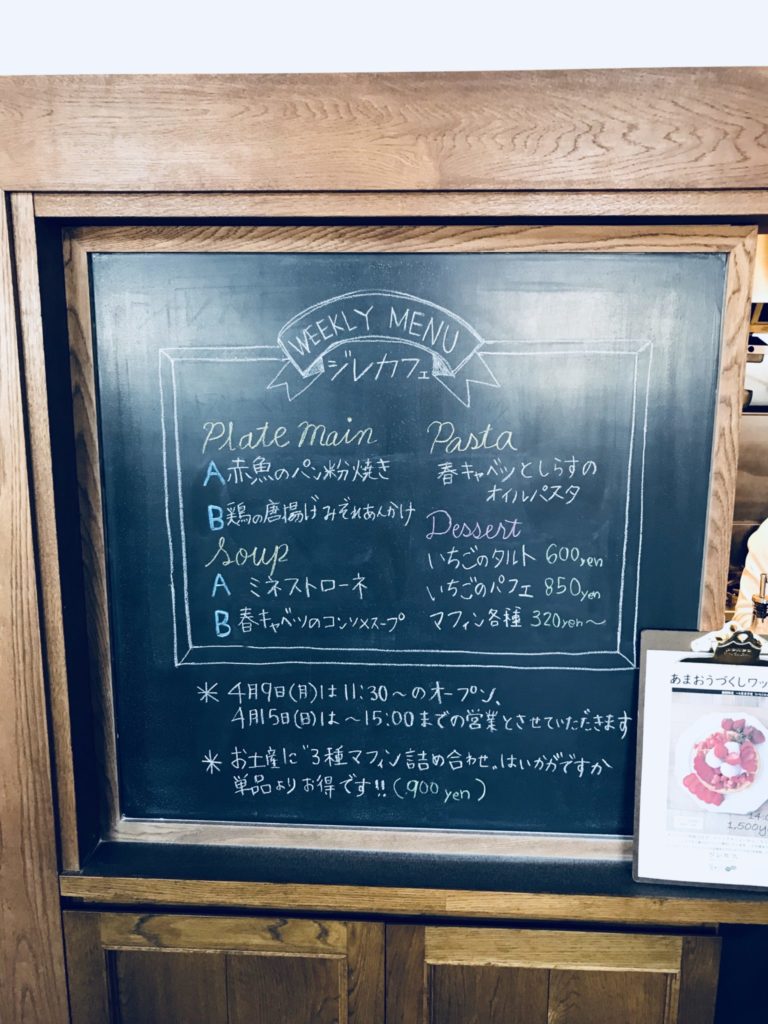 WEEKLY MENU
ジレカフェ
Plate Main
A 赤魚のパン粉焼き
B 鶏の唐揚げみぞれあんかけ
Soup
A ミネストローネ
B 春キャベツのコンソメスープ
Pasta
春キャベツとしらすの
オイルパスタ
Dessert
いちごのタルト 600yen
いちごのパフェ 850yen
マフィン各種 320yen～
＊ 4月9日(月)は11:30～のオープン、
4月15日(日)は～15:00までの営業とさせていただきます
＊ お土産に“3種マフィン詰め合わせ”はいかがですか
単品よりお得です!!(900yen)
あまおうづくしワッ
14:0
1,500y